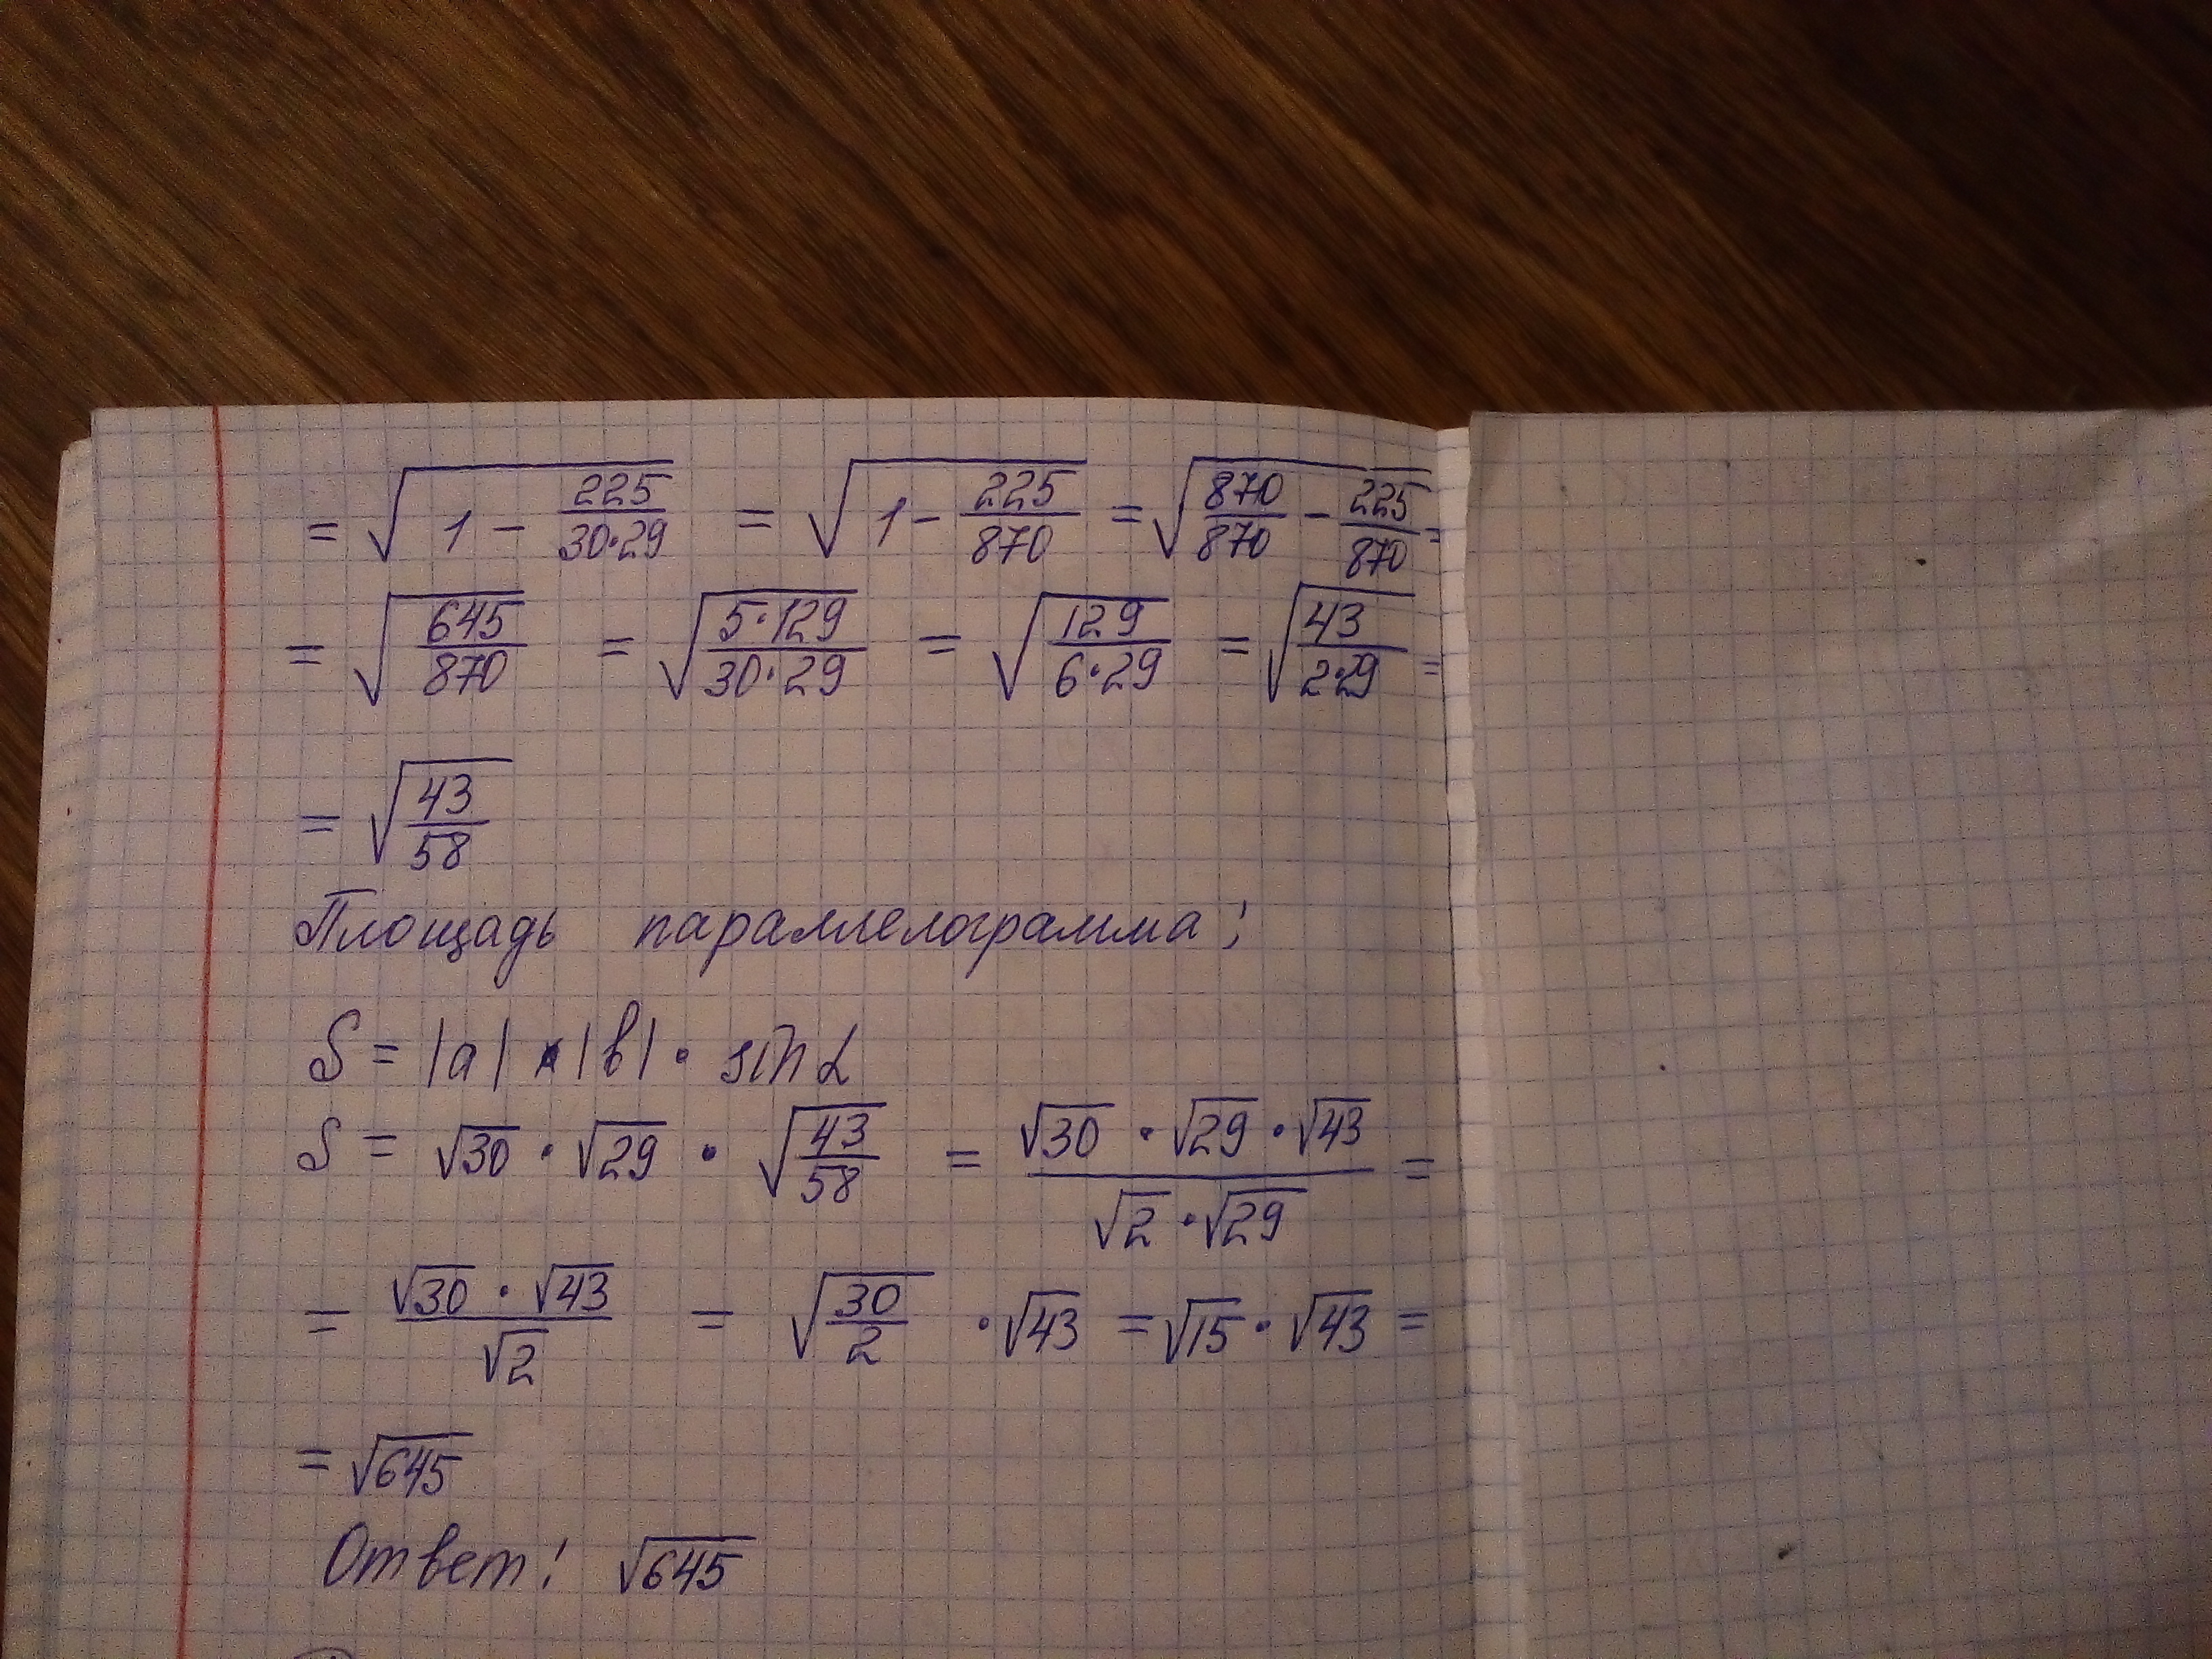 = √(1 - 225/(30·29)) = √(1 - 225/870) = √(870/870 - 225/870) =
= √(645/870) = √((5·129)/(30·29)) = √(129/(6·29)) = √(43/(2·29)) =
= √(43/58)
Площадь параллелограмма:
S = |a| · |b| · sin α
S = √30 · √29 · √(43/58) = (√30 · √29 · √43)/(√2 · √29) =
= (√30 · √43)/√2 = √(30/2) · √43 = √15 · √43 =
= √645
Ответ: √645